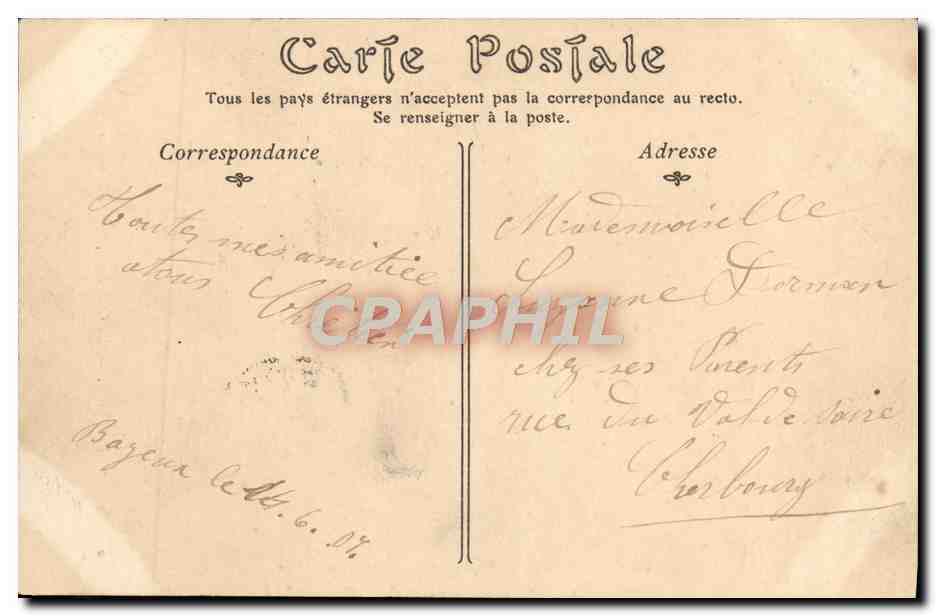 Carte Postale
Tous les pays étrangers n'acceptent pas la correspondance au recto.
Se renseigner à la poste.
Correspondance
Toutes mes amitiée
atous
Bayeux le 14.6.07.
Adresse
Mademoiselle
Suzanne Dorman
chez ses Parents
rue du Val de Saire
Cherbourg
CPAPHIL